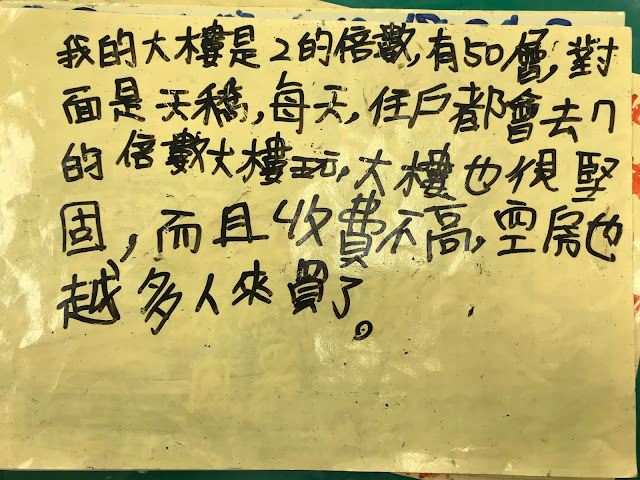 我的大樓是2的倍數,有50層,對
面是天鵝,每天,住戶都會去7
的倍數大樓玩,大樓也很堅
固,而且收費不高,空房也
越多人來買了。